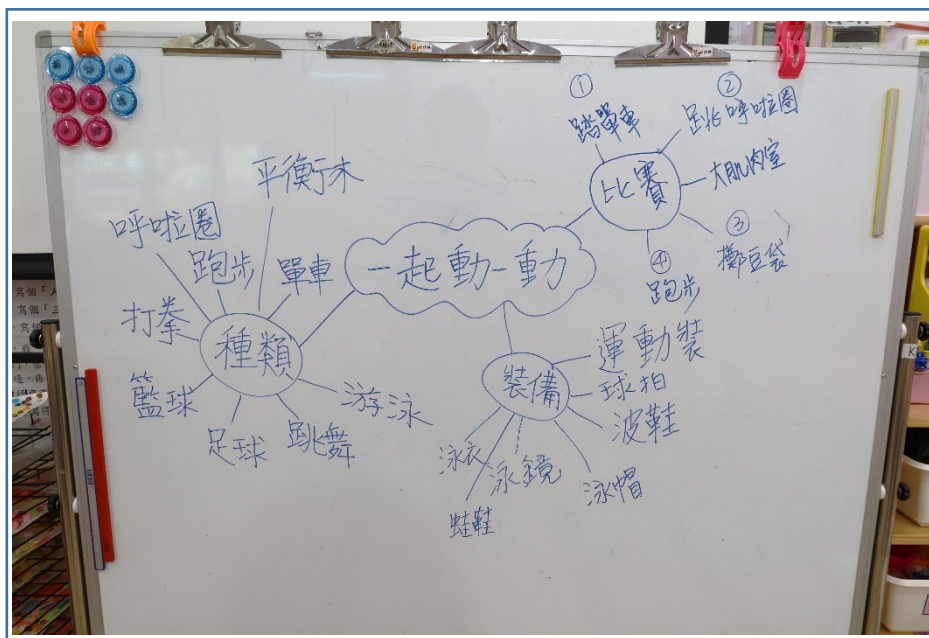 一起動一動
種類
平衡木
呼啦圈
跑步
單車
打拳
籃球
足球
跳舞
游泳
比賽
①
踏單車
②
跳呼啦圈
大肌肉室
③
擲豆袋
④
跑步
裝備
運動裝
球拍
波鞋
泳衣
泳鏡
泳帽
蛙鞋